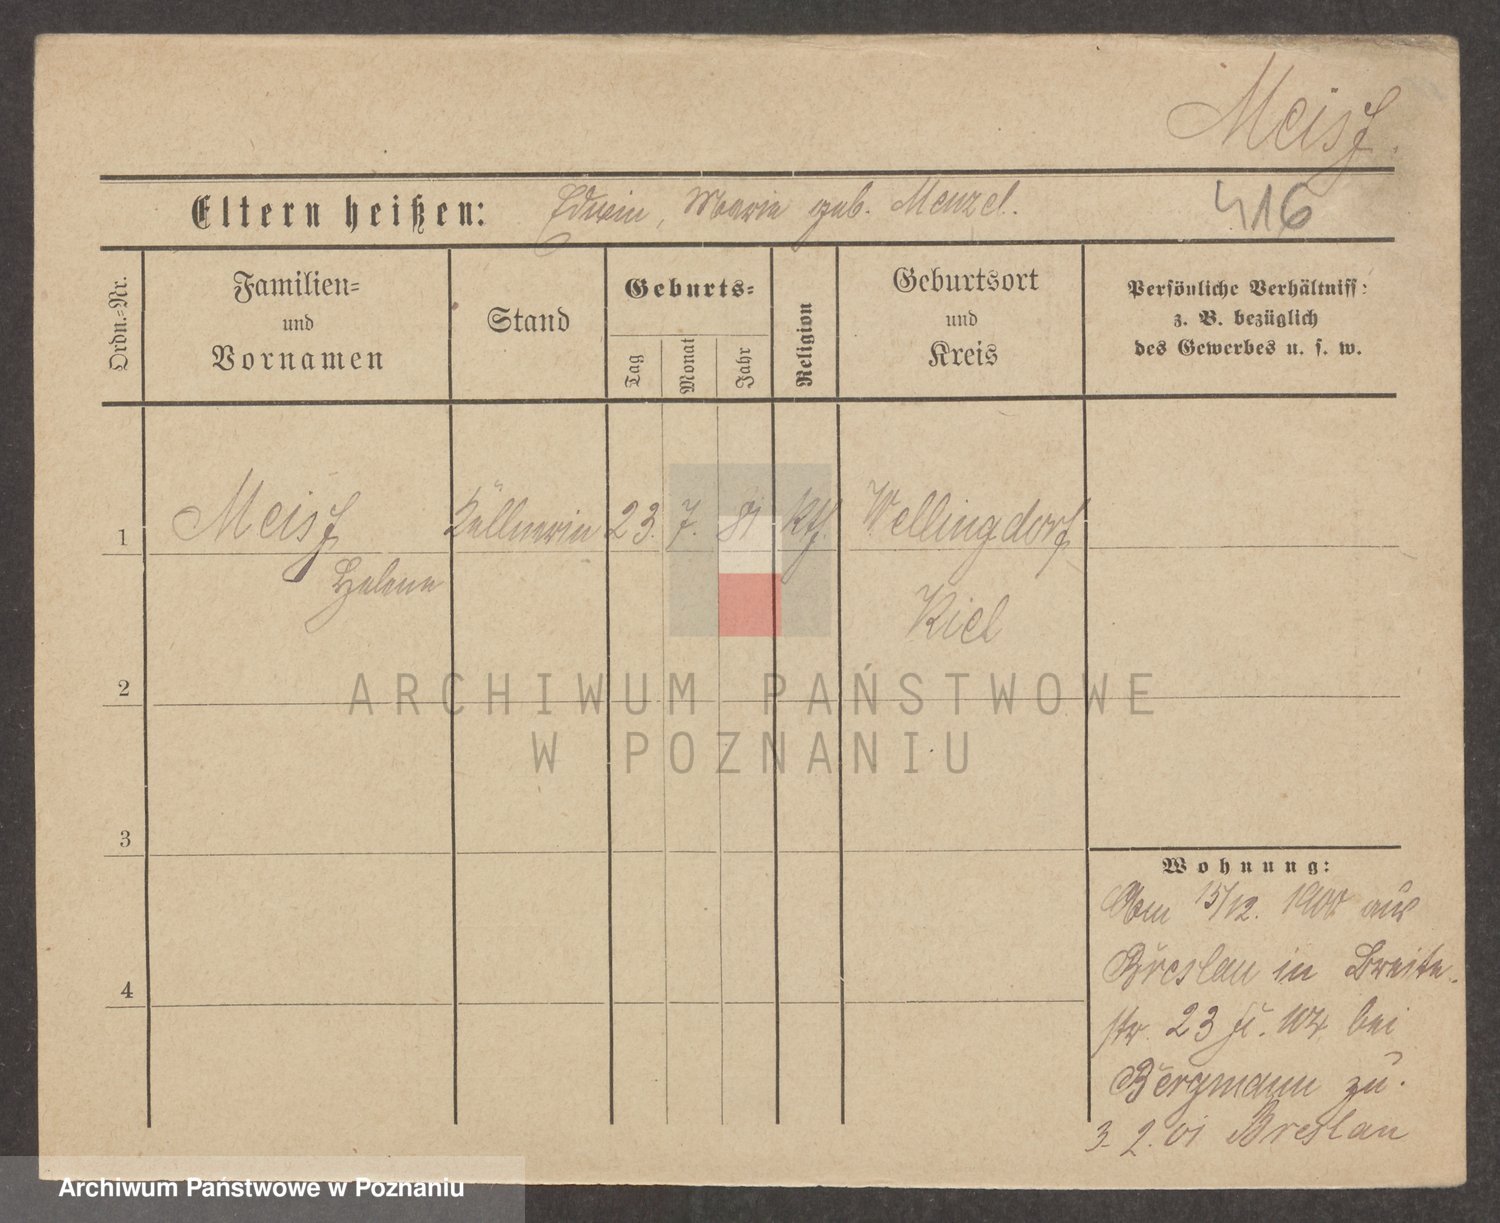 Meisz.
Eltern heißen: Edwin, Maria geb. Menzel.
416
Ordn.=Nr.
Familien=
und
Vornamen
Stand
Geburts=
Tag
Monat
Jahr
Religion
Geburtsort
und
Kreis
Persönliche Verhältniss:
z. B. bezüglich
des Gewerbes u. s. w.
1 Meisz Kellnerin 23. 7. 81 kth. Wellingdorf
Helene
Kiel
2
3
4
Wohnung:
Am 15/12. 1900 aus
Breslau in Breite-
str. 23 104 bei
Bergmann zu.
3. 2. 01 Breslau
ARCHIWUM PAŃSTWOWE
W POZNANIU
Archiwum Państwowe w Poznaniu